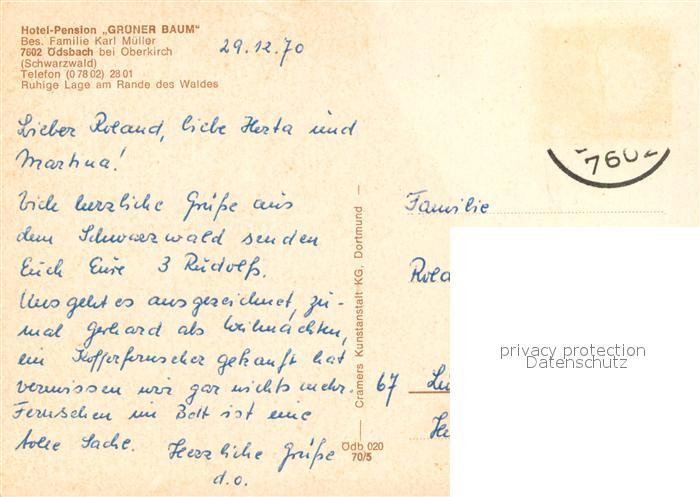 Hotel-Pension „GRÜNER BAUM"
Bes. Familie Karl Müller
7602 Ödsbach bei Oberkirch
(Schwarzwald)
Telefon (0 78 02) 28 01
Ruhige Lage am Rande des Waldes
29.12.70
Lieber Roland, liebe Herta und
Martina!
Viele herzliche Grüße aus
dem Schwarzwald senden
Euch Eure 3 Rudolfs.
Uns geht es ausgezeichnet, zu-
mal Gerhard als Weihnachten,
ein Kofferfernseher gekauft hat
vermissen wir gar nichts mehr.
Fernsehen im Bett ist eine
tolle Sache. Herzliche Grüße
d.o.
Cramers Kunstanstalt KG, Dortmund
Ödb 020
70/5
7602
Familie
Rola
67 Lu
He
privacy protection
Datenschutz